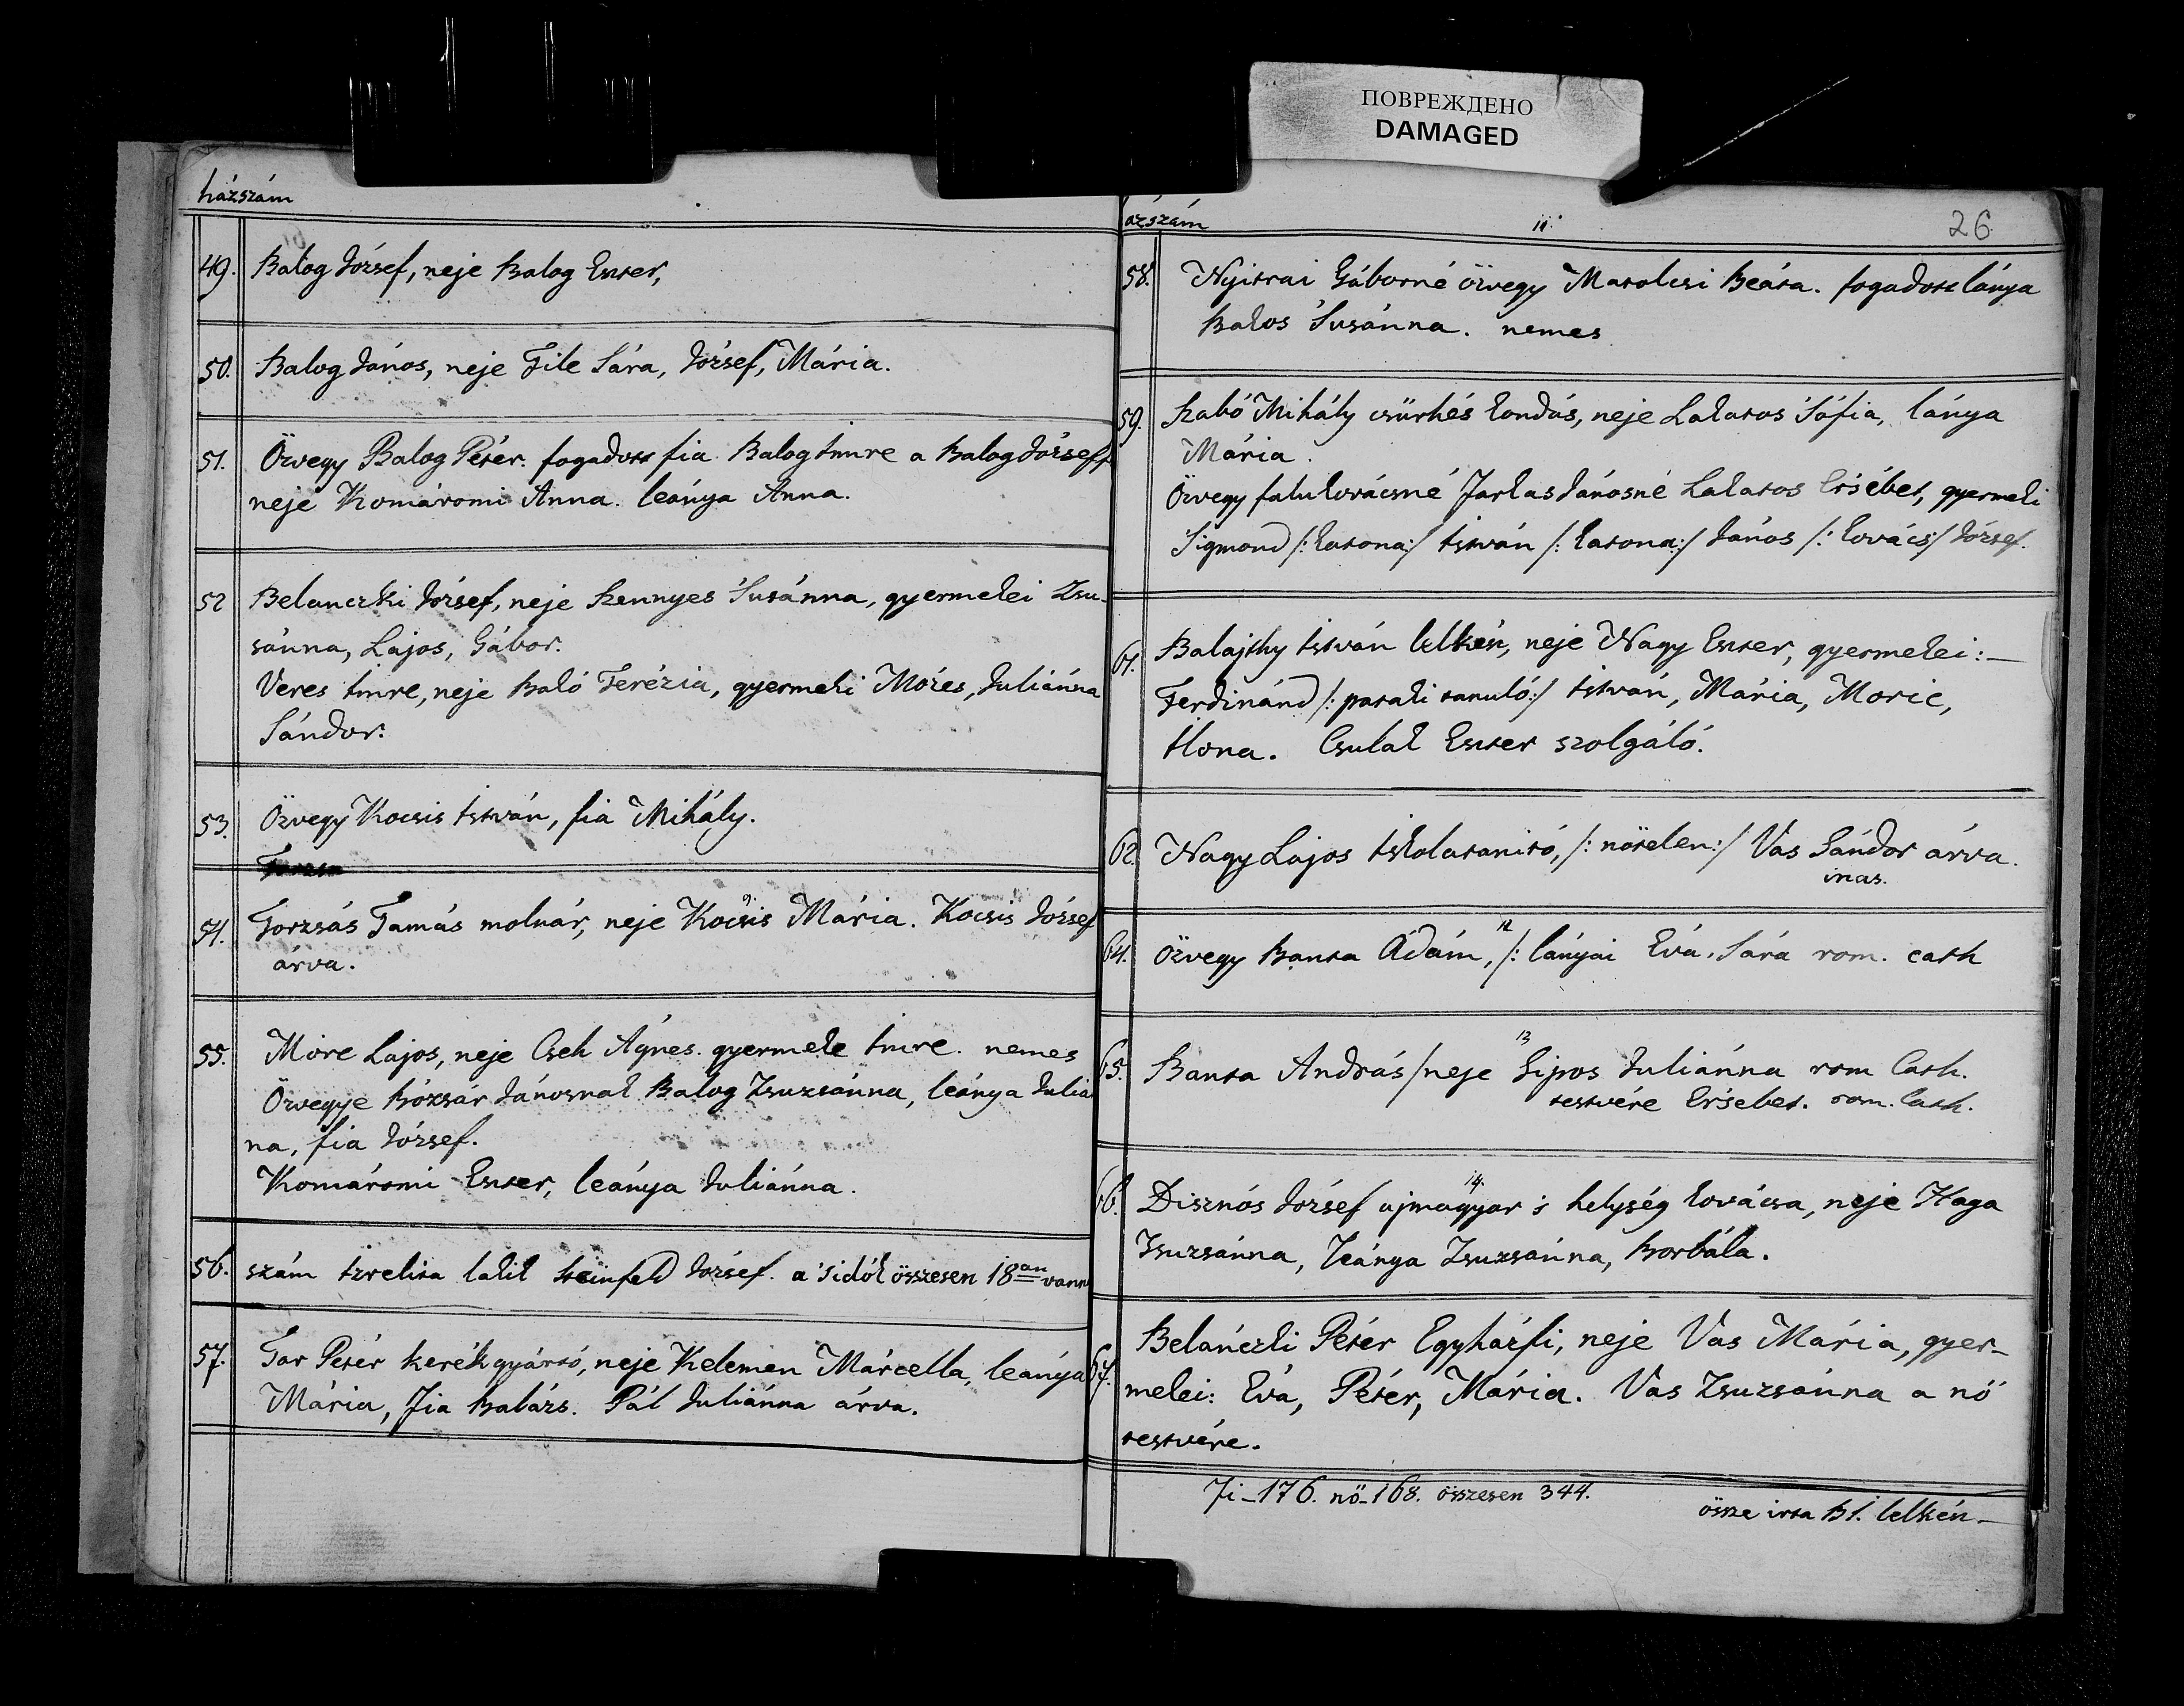 ПОВРЕЖДЕНО
DAMAGED
házszám
49. Balog József, neje Balog Eszter,
50. Balog János, neje File Sára, József, Mária.
51. Özvegy Balog Péter. fogadott fia Balog Imre a Balog József
neje Komáromi Anna. leánya Anna.
52 Belanczki József, neje Szennyes Susánna, gyermekei Zsu-
sánna, Lajos, Gábor.
Veres Imre, neje Bakó Terézia, gyermeki Mózes, Juliánna
Sándor.
53. Özvegy Kocsis István, fia Mihály.
54. Torzsás Tamás molnár, neje Kocsis Mária. Kocsis József
árva.
55. More Lajos, neje Cseh Ágnes. gyermeke Imre. nemes
Özvegye Bózsár Jánosnak Balog Zsuzsánna, leánya Julián
na, fia József.
Komáromi Eszter, leánya Juliánna.
56. szám Izrelita lakik Steinfeld József. a 'sidók összesen 18an vann
57. Tar Péter kerékgyártó, neje Kelemen Márcella, leánya
Mária, fia Balázs. Pál Juliánna árva.
ázszám 11. 26
58. Nyitrai Gáborné özvegy Matolcsi Beáta. fogadott lánya
Bakos Susánna. nemes
59. Szabó Mihály csürhés kondás, neje Lakatos Sófia, lánya
Mária.
Özvegy falukovácsné Farkas Jánosné Lakatos Ersébet, gyermeki
Sigmond /: katona:/ István /: katona:/ János /: kovács:/ József.
61. Balajthy István lelkész, neje Nagy Eszter, gyermekei:–
Ferdinánd /: pataki tanuló:/ István, Mária, Moric,
Ilona. Csulak Eszter szolgáló.
62. Nagy Lajos Iskolatanító, /: nőtelen:/ Vas Sándor árva.
inas.
64. Özvegy Banta Ádám, 12 /: lányai Éva, Sára rom. cath
65. Banta András /neje 13 Sipos Juliánna rom Cath.
testvére Ersebet. rom. Cath.
66. Disznós József ujmagyar 14. 's helység kovácsa, neje Haga
Zsuzsánna, leánya Zsuzsánna, Borbála.
67. Belanczki Péter Egyházfi, neje Vas Mária, gyer-
mekei: Éva, Péter, Mária. Vas Zsuzsánna a nő
testvére.
Fi–176. nő–168. összesen 344.
össze irta B.I. lelkész–